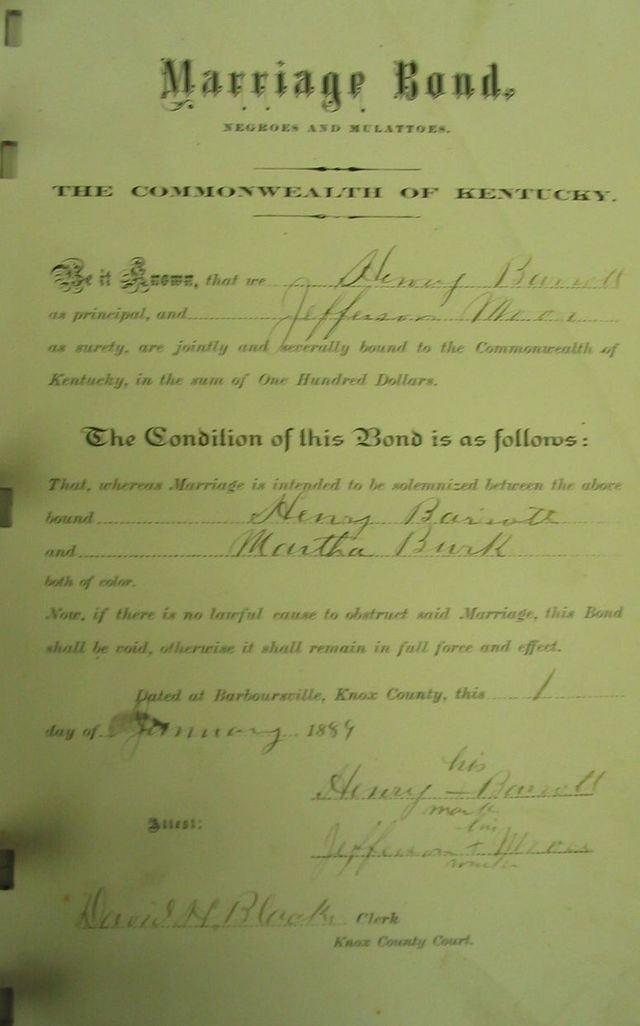 Marriage Bond.
NEGROES AND MULATTOES.
THE COMMONWEALTH OF KENTUCKY.
Be it Known, that we Henry Barrott
as principal, and Jefferson Moore
as surety, are jointly and severally bound to the Commonwealth of
Kentucky, in the sum of One Hundred Dollars.
The Condition of this Bond is as follows:
That, whereas Marriage is intended to be solemnized between the above
bound Henry Barrott
and Martha Burk
both of color.
Now, if there is no lawful cause to obstruct said Marriage, this Bond
shall be void, otherwise it shall remain in full force and effect.
Dated at Barboursville, Knox County, this 1
day of January 1889
his
Henry + Barrott
mark
Attest:
his
Jefferson + Moore
mark
David H. Black Clerk
Knox County Court.